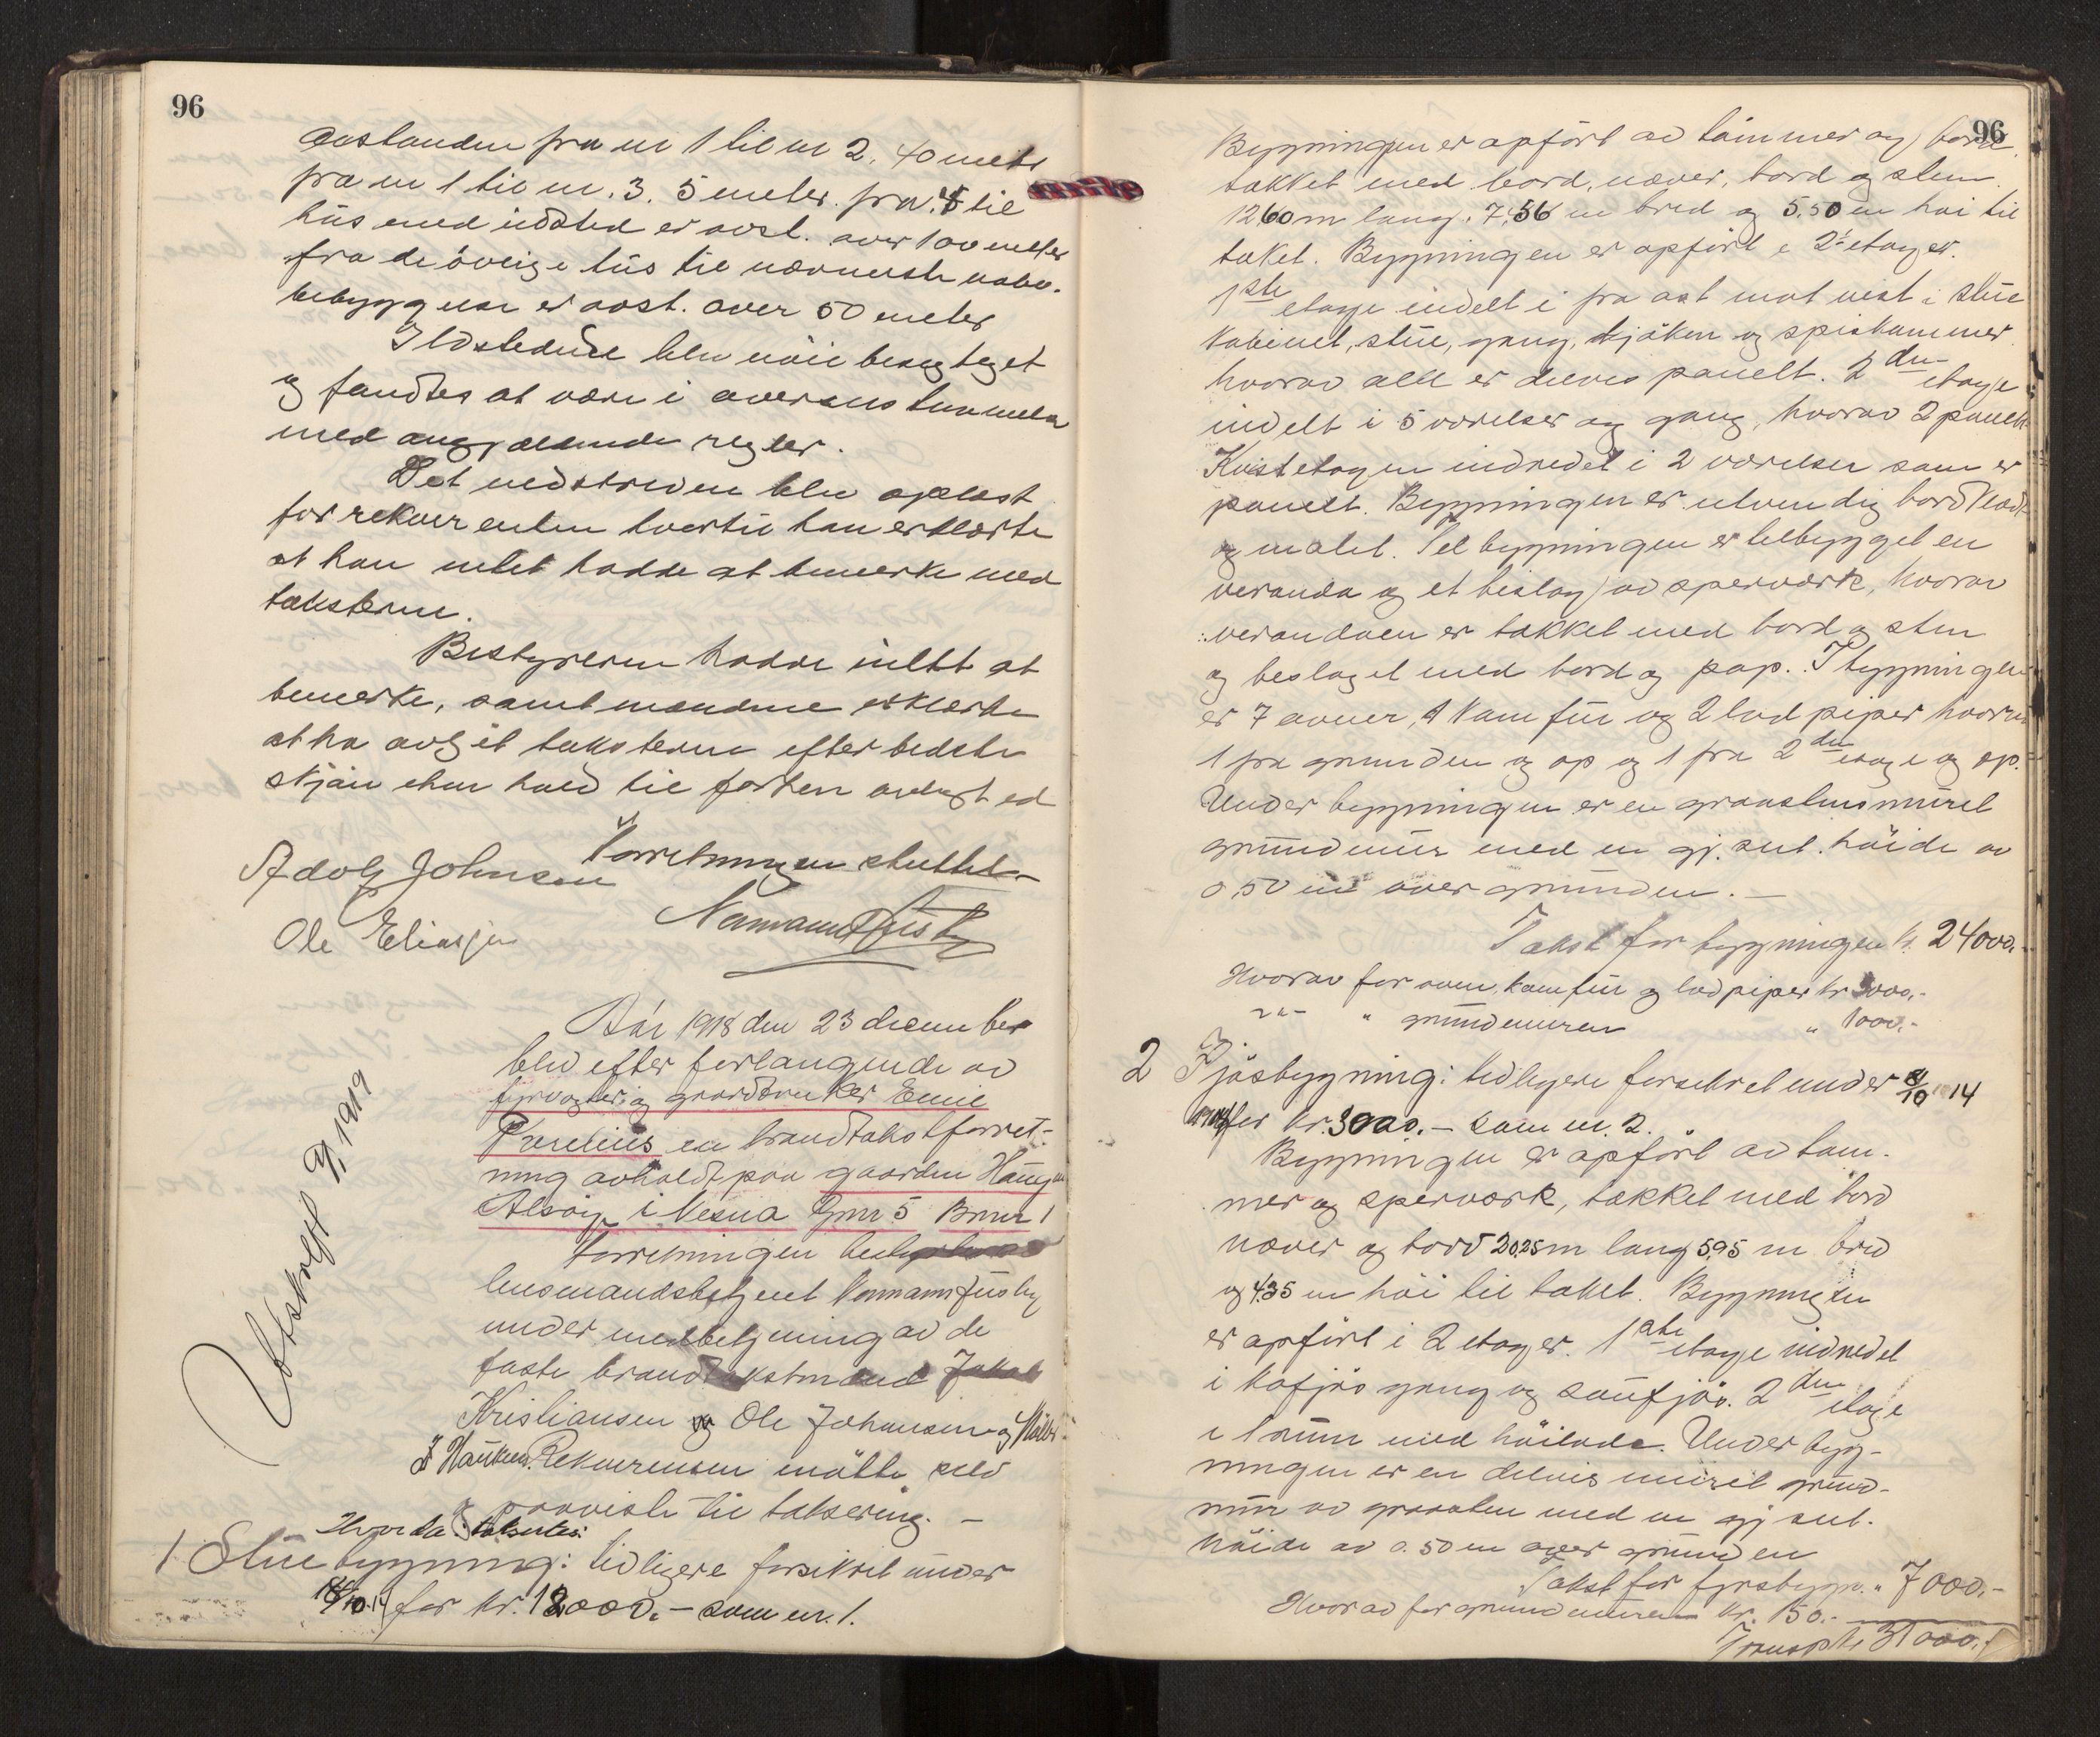 96
Avstanden fra nr 1 til nr 2. 40 meter
fra nr 1 til nr. 3. 5 meter. fra 4 til
hus med ildsted er avst. over 100 meter
fra de övrige hus til nærmeste nabo-
bebyggelse er avst. over 50 meter
Ildstedene blev nöie besigtiget
og fandtes at være i overensstemmelse
med angjældende regler.
Det nedskrevne blev oplæst
for rekvirenten hvortil han erklærte
at han intet hadde at bemerke med
taksterne.
Bestyreren hadde intet at
bemerke, samt mændene erklærte
at ha avgit taksterne efter bedste
skjön i henhold til forhen avlagt ed
Forretningen sluttet
Adolf Johnsen
Ole Eliasen
Normann Husby
Utskrift 9/1 1919
Aar 1918 den 23 december
blev efter forlangende av
fyrvogter og gaardbruker Emil
en brandtakstforret-
ning avholdt paa gaarden
Alsöig i Nesna Gnr 5 Bnr 1
Forretningen
lensmandsbetjent Normann Husby
under medbetjening av de
faste brandtakstmænd Jakob
Kristiansen og Ole Johansen og
Rekvirenten mötte selv
og paaviste til taksering. —
Hvorda takseres:
1 Stuebygning: tidligere forsikret under
for kr. 12000.- som nr. 1.
96
Bygningen er opfört av tömmer og bord
takket med bord, næver, bord og sten.
12,60 m lang. 7,56 m bred og 5.50 m höi til
taket. Bygningen er opfört i 2½ etager.
1ste etage indelt i fra ost mot vest i stue
kabinet, stue, gang, kjöken og spiskammer
hvorav alle er delvis panelt. 2den etage
indelt i 5 værelser og gang, hvorav 2 panelt
Kvistetagen indredet i 2 værelser som er
panelt. Bygningen er utvendig bordklædt
og malet. Til bygningen er tilbygget en
veranda og et bislag av sperværk, hvorav
verandaen er takket med bord og sten
og beslaget med bord og pap. I bygningen
er 7 ovner, 1 kamfur og 2 lodpiper hvorav
1 fra grunden og op og 1 fra 2den etage og op.
Under bygningen er en graastensmuret
grundmur med en gj.snt. höide av
0,50 m over grunden. —
Takst for bygningen kr. 24000.-
Hvorav for ovner, kamfur og lodpiper kr 3000,-
" " grundmuren " 1000.-
2 Fjösbygning: tidligere forsikret under 8/10 1914
for kr. 3000.- som nr. 2.
Bygningen er opfört av töm-
mer og sperværk, takket med bord
næver og torv 20,25 m lang 5,95 m bred
og 4,35 m höi til taket. Bygningen
er opfört i 2 etager. 1ste etage indredet
i kofjös gang og saufjös. 2den etage
i 1 rum med höilade. Under byg-
ningen er en delvis muret grund-
mur av graasten med en gj snt.
höide av 0.50 m over grunden
Takst for fjösbygn. " 7000.-
Hvorav for grundmuren kr. 150.-
Transp kr 31000.-